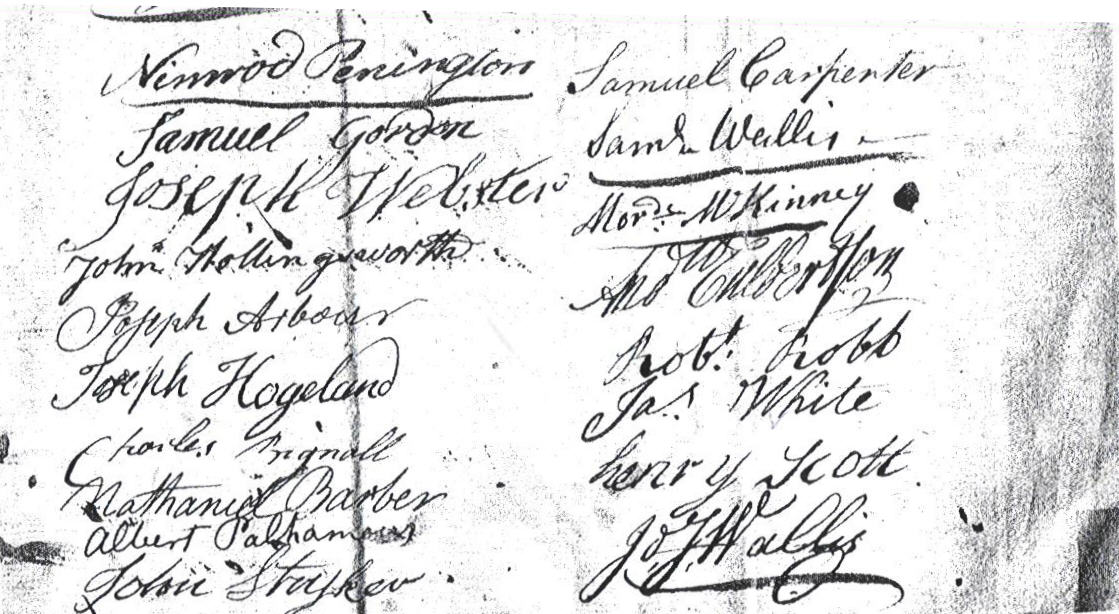 Nimrod Penington
Samuel Gordon
Joseph Webster
John Hollingsworth
Joseph Arbour
Joseph Hogeland
Charles Bignall
Nathaniel Barber
Albert Palhamous
John Stryker
Samuel Carpenter
Saml. Wallis
Mord. McKinney
And W Culbertson
Robt. Robb
Jas. White
Henry Scott
Jo. J. Wallis